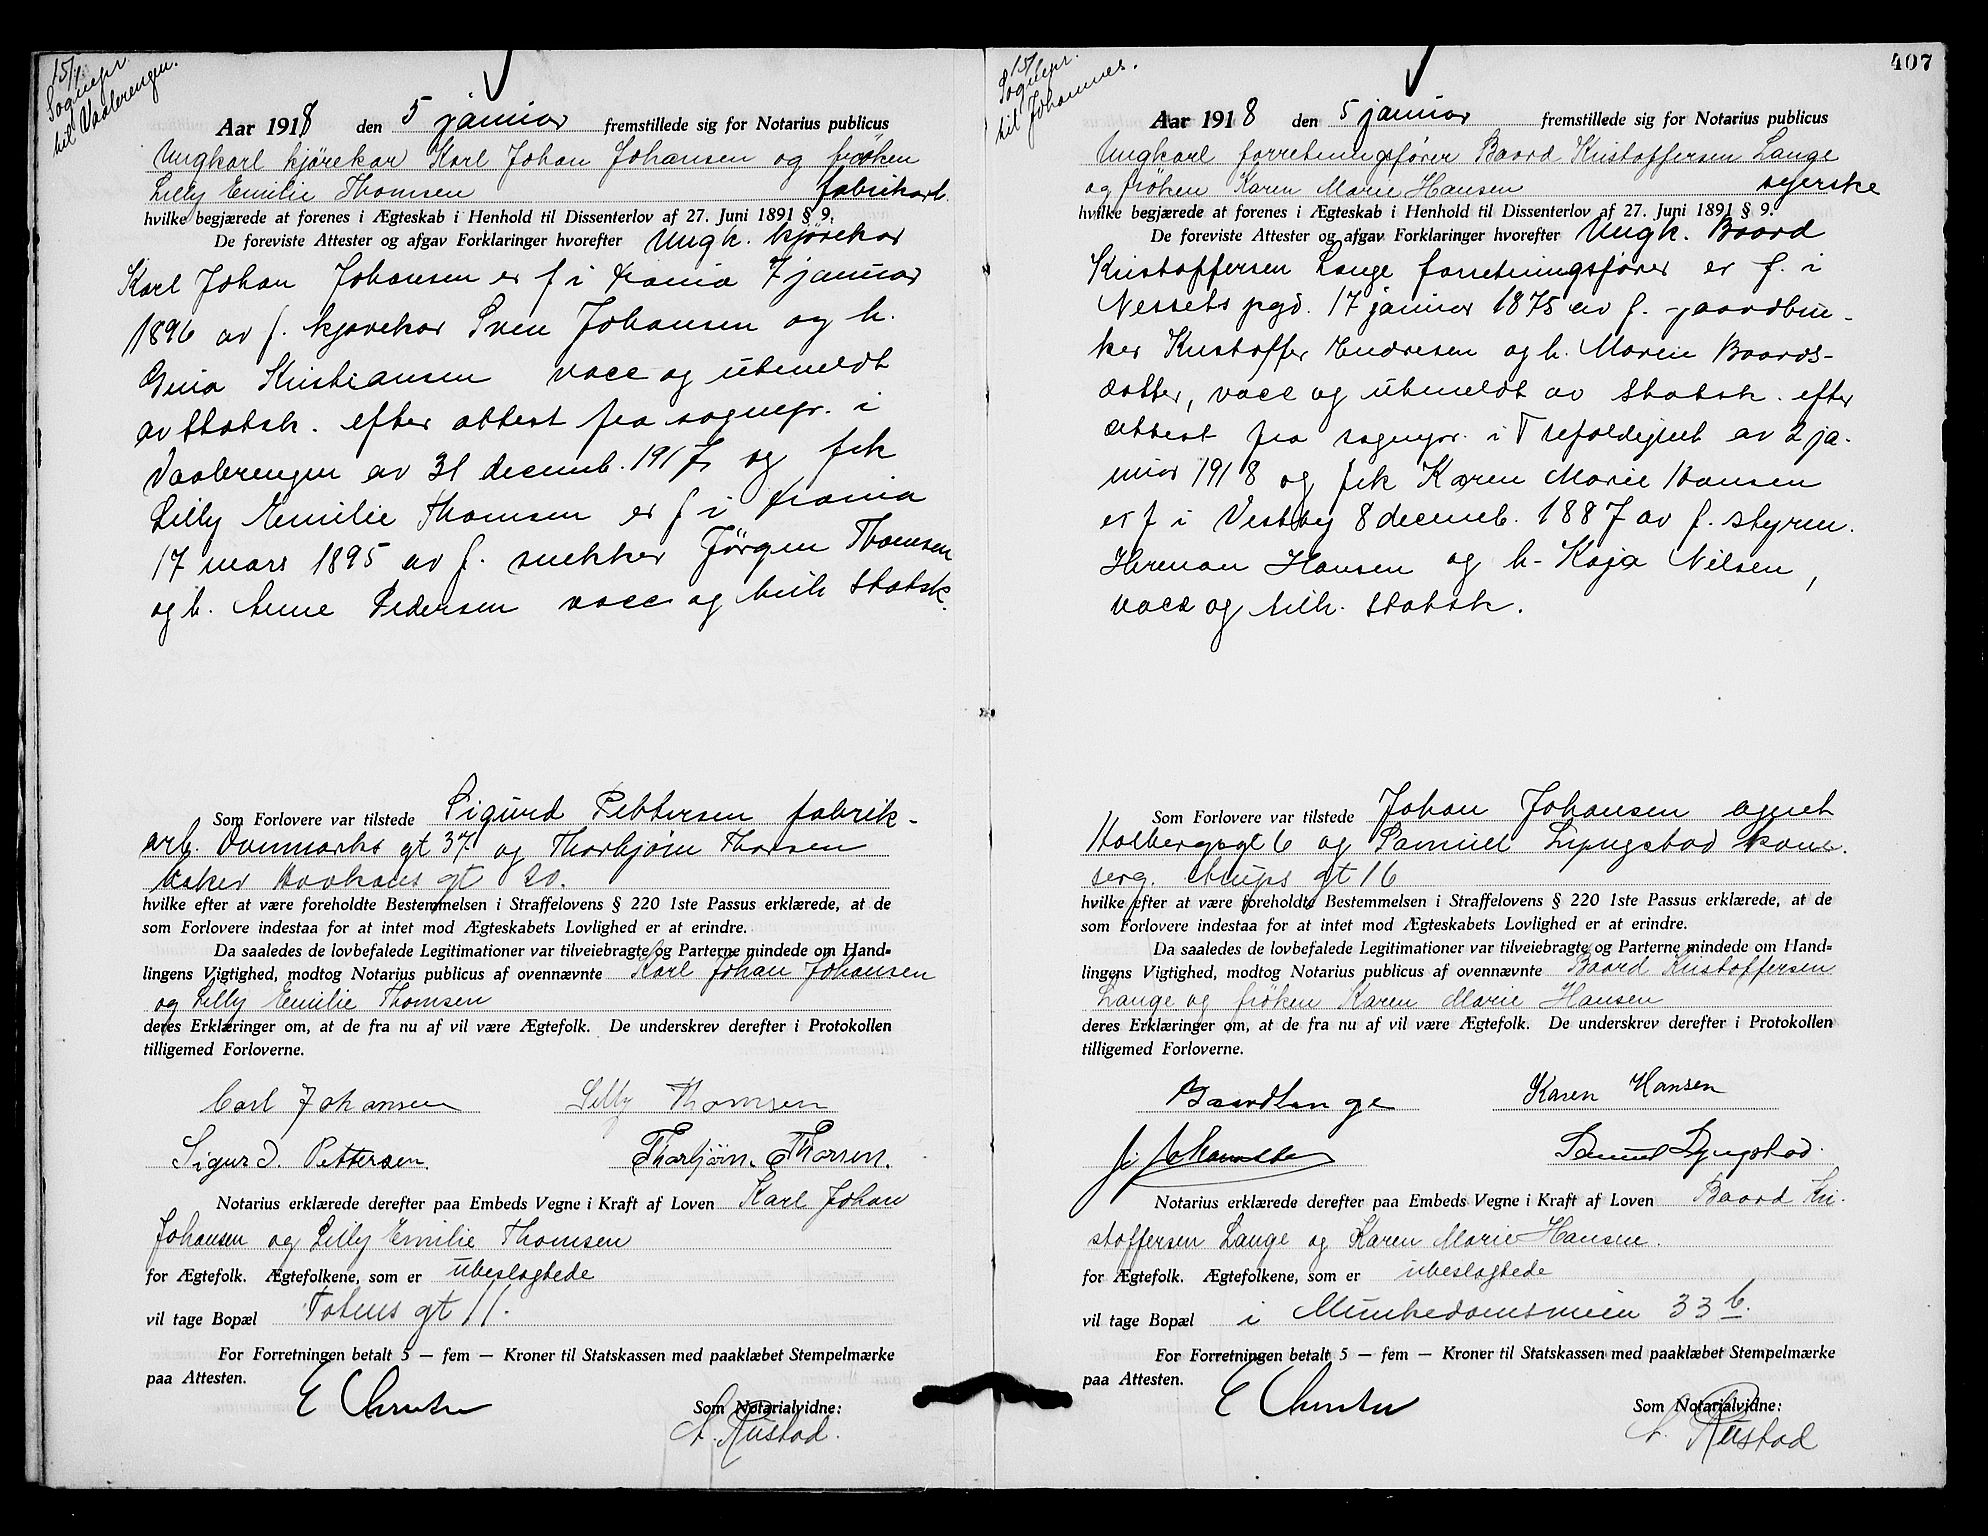 15/1.
Sognepr.
til Vaalerengen.
Aar 1918 den 5 januar fremstillede sig for Notarius publicus
Ungkarl kjørekar Karl Johan Johansen og frøken
Lilly Emilie Thomsen fabrikarb.
hvilke begjærede at forenes i Ægteskab i Henhold til Dissenterlov af 27. Juni 1891 § 9.
De foreviste Attester og afgav Forklaringer hvorefter Ungk. kjørekar
Karl Johan Johansen er f i Krania 7 januar
1896 av f. kjørekar Sven Johansen og h.
Gina Kristiansen vacc og utmeldt
av Statsk. efter attest fra sognepr. i
Vaalerengen av 31 decemb. 1917, og frk
Lilly Emilie Thomsen er f i Krania
17 mars 1895 av f. snekker Jørgen Thomsen
og h. Anne Pedersen vacc og tilh Statsk.
Som Forlovere var tilstede Sigurd Pettersen fabrik-
arb. Danmarks gt 37 og Thorbjørn Thorsen
baker gt 20.
hvilke efter at være foreholdte Bestemmelsen i Straffelovens § 220 1ste Passus erklærede, at de
som Forlovere indestaa for at intet mod Ægteskabets Lovlighed er at erindre.
Da saaledes de lovbefalede Legitimationer var tilveiebragte og Parterne mindede om Hand-
lingens Vigtighed, modtog Notarius publicus af ovennævnte Karl Johan Johansen
og Lilly Emilie Thomsen
deres Erklæringer om, at de fra nu af vil være Ægtefolk. De underskrev derefter i Protokollen
tilligemed Forloverne.
Carl Johansen Lilly Thomsen
Sigurd. Pettersen. Thorbjørn. Thorsen.
Notarius erklærede derefter paa Embeds Vegne i Kraft af Loven Karl Johan
Johansen og Lilly Emilie Thomsen
for Ægtefolk. Ægtefolkene, som er ubeslagtede
vil tage Bopæl Totens gt 11.
For Forretningen betalt 5 — fem — Kroner til Statskassen med paaklæbet Stempelmærke
paa Attesten.
Som Notarialvidne:
Rustad.
407
15/1.
Sognepr.
til Johannes.
Aar 1918 den 5 januar fremstillede sig for Notarius publicus
Ungkarl forretningsfører Baard Kristoffersen Lange
og frøken Karen Marie Hansen syerske
hvilke begjærede at forenes i Ægteskab i Henhold til Dissenterlov af 27. Juni 1891 § 9.
De foreviste Attester og afgav Forklaringer hvorefter Ungk. Baard
Kristoffersen Lange forretningsfører er f. i
Nessets pgd. 17 januar 1875 av f. gaardbru-
ker Kristoffer Endresen og h. Maren Baards-
datter, vacc og utmeldt av Statsk. efter
attest fra sognepr. i Trefoldighet av 2 ja-
nuar 1918 og frk Karen Marie Hansen
er f i Vestby 8 decemb. 1887 av f. styrm.
Herman Hansen og h. Kaja Nilsen,
vacc og tilh. Statsk.
Som Forlovere var tilstede Johan Johansen agent
Holbergsgt 6 og Samuel Lyngstad
serg. gt 16
hvilke efter at være foreholdte Bestemmelsen i Straffelovens § 220 1ste Passus erklærede, at de
som Forlovere indestaa for at intet mod Ægteskabets Lovlighed er at erindre.
Da saaledes de lovbefalede Legitimationer var tilveiebragte og Parterne mindede om Hand-
lingens Vigtighed, modtog Notarius publicus af ovennævnte Baard Kristoffersen
Lange og frøken Karen Marie Hansen
deres Erklæringer om, at de fra nu af vil være Ægtefolk. De underskrev derefter i Protokollen
tilligemed Forloverne.
Baard Lange Karen Hansen
Samuel Lyngstad.
Notarius erklærede derefter paa Embeds Vegne i Kraft af Loven Baard Kri-
stoffersen Lange og Karen Marie Hansen.
for Ægtefolk. Ægtefolkene, som er ubeslagtede
vil tage Bopæl i Munkedamsveien 33 b.
For Forretningen betalt 5 — fem — Kroner til Statskassen med paaklæbet Stempelmærke
paa Attesten.
Som Notarialvidne:
Rustad